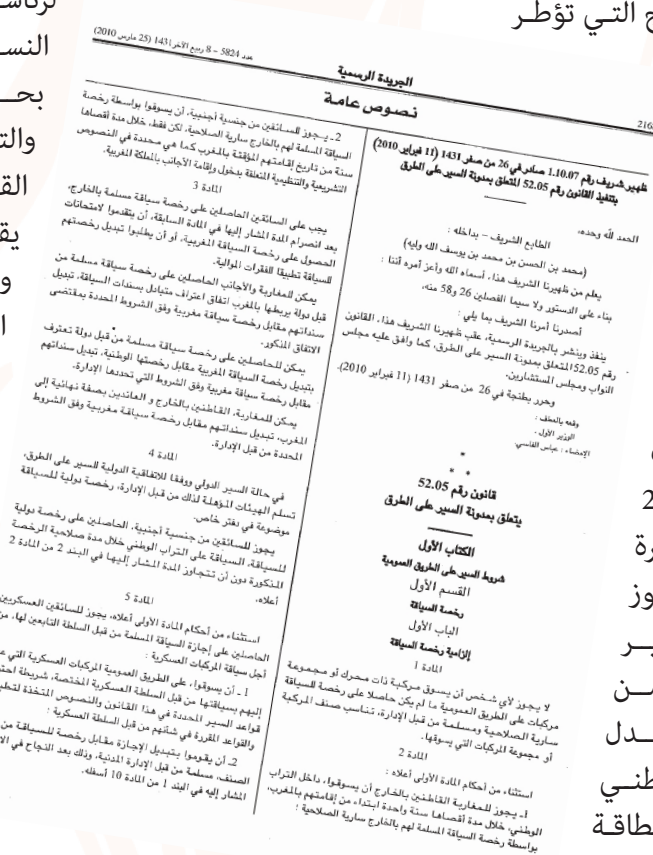 ح التي تؤطر
عدد 5824 – 8 ربيع الآخر 1431 (25 مارس 2010)
الجريدة الرسمية
نصوص عامة
ظهير شريف رقم 1.10.07 صادر في 26 من صفر 1431 (11 فبراير 2010)
بتنفيذ القانون رقم 52.05 المتعلق بمدونة السير على الطرق
الحمد لله وحده،
الطابع الشريف – بداخله :
(محمد بن الحسن بن محمد بن يوسف الله وليه)
يعلم من ظهيرنا الشريف هذا، أسماه الله وأعز أمره أننا :
بناء على الدستور ولا سيما الفصلين 26 و58 منه،
أصدرنا أمرنا الشريف بما يلي :
ينفذ وينشر بالجريدة الرسمية، عقب ظهيرنا الشريف هذا، القانون
رقم 52.05 المتعلق بمدونة السير على الطرق، كما وافق عليه مجلس
النواب ومجلس المستشارين.
وحرر بطنجة في 26 من صفر 1431 (11 فبراير 2010).
وقعه بالعطف :
الوزير الأول،
الإمضاء : عباس الفاسي.
*
* *
قانون رقم 52.05
يتعلق بمدونة السير على الطرق
الكتاب الأول
شروط السير على الطريق العمومية
القسم الأول
رخصة السياقة
الباب الأول
إلزامية رخصة السياقة
المادة 1
لا يجوز لأي شخص أن يسوق مركبة ذات محرك أو مجموعة
مركبات على الطريق العمومية ما لم يكن حاصلا على رخصة للسياقة
سارية الصلاحية ومسلمة من قبل الإدارة، تناسب صنف المركبة
أو مجموعة المركبات التي يسوقها.
المادة 2
استثناء من أحكام المادة الأولى أعلاه :
1- يجوز للمغاربة القاطنين بالخارج أن يسوقوا، داخل التراب
الوطني، خلال مدة أقصاها سنة واحدة ابتداء من إقامتهم بالمغرب،
بواسطة رخصة السياقة المسلمة لهم بالخارج سارية الصلاحية ؛
2 ـ يجوز للسائقين من جنسية أجنبية، أن يسوقوا بواسطة رخصة
السياقة المسلمة لهم بالخارج سارية الصلاحية، لكن فقط، خلال مدة أقصاها
سنة من تاريخ إقامتهم المؤقتة بالمغرب كما هي محددة في النصوص
التشريعية والتنظيمية المتعلقة بدخول وإقامة الأجانب بالمملكة المغربية.
المادة 3
يجب على السائقين الحاصلين على رخصة سياقة مسلمة بالخارج،
بعد انصرام المدة المشار إليها في المادة السابقة، أن يتقدموا لامتحانات
الحصول على رخصة السياقة المغربية، أو أن يطلبوا تبديل رخصتهم
للسياقة تطبيقا للفقرات الموالية.
يمكن للمغاربة والأجانب الحاصلين على رخصة سياقة مسلمة من
قبل دولة يربطها بالمغرب اتفاق اعتراف متبادل بسندات السياقة، تبديل
سنداتهم مقابل رخصة سياقة مغربية وفق الشروط المحددة بمقتضى
الاتفاق المذكور.
يمكن للحاصلين على رخصة سياقة مسلمة من قبل دولة تعترف
بتبديل رخصة السياقة المغربية مقابل رخصتها الوطنية، تبديل سنداتهم
مقابل رخصة سياقة مغربية وفق الشروط التي تحددها الإدارة.
يمكن للمغاربة، القاطنين بالخارج و العائدين بصفة نهائية إلى
المغرب، تبديل سنداتهم مقابل رخصة سياقة مغربية وفق الشروط
المحددة من قبل الإدارة.
المادة 4
في حالة السير الدولي ووفقا للاتفاقية الدولية للسير على الطرق،
تسلم الهيئات المؤهلة لذلك من قبل الإدارة، رخصة دولية للسياقة
موضوعة في دفتر خاص.
يجوز للسائقين من جنسية أجنبية، الحاصلين على رخصة دولية
للسياقة، السياقة على التراب الوطني خلال مدة صلاحية الرخصة
المذكورة دون أن تتجاوز المدة المشار إليها في البند 2 من المادة 2
أعلاه.
المادة 5
استثناء من أحكام المادة الأولى أعلاه، يجوز للسائقين العسكريين
الحاصلين على إجازة السياقة المسلمة من قبل السلطة التابعين لها، من
أجل سياقة المركبات العسكرية :
1 ـ أن يسوقوا، على الطريق العمومية المركبات العسكرية التي
إليهم بسياقتها من قبل السلطة العسكرية المختصة، شريطة
قواعد السير المحددة في هذا القانون والنصوص المتخذة
والقواعد المقررة في شأنهم من قبل السلطة العسكرية ؛
2ـ أن يقوموا بتبديل الإجازة مقابل رخصة للسياقة من
الصنف، مسلمة من قبل الإدارة المدنية، وذلك بعد النجاح في
المشار إليه في البند 1 من المادة 10 أسفله.